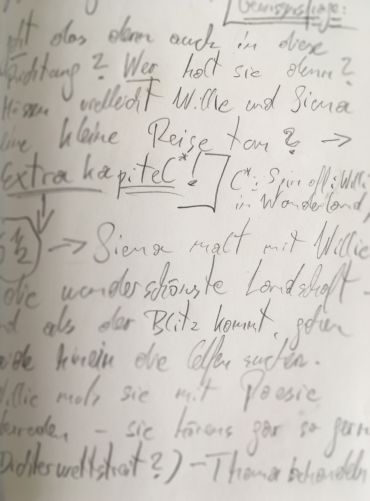 das denn auch in diese
Richtung? Wer holt sie denn?
Müssen vielleicht Willie und Siena
eine kleine Reise tun? →
Extrakapitel*!
*: Spin off: Willi
in Wonderland,
→ Siena malt mit Willie
die wunderschönste Landschaft -
und als der Blitz kommt, gehen
hinein die Elfen suchen.
Willie muß sie mit Poesie
- sie hörens gar so gern
(Dichterwettstreit?) - Thema